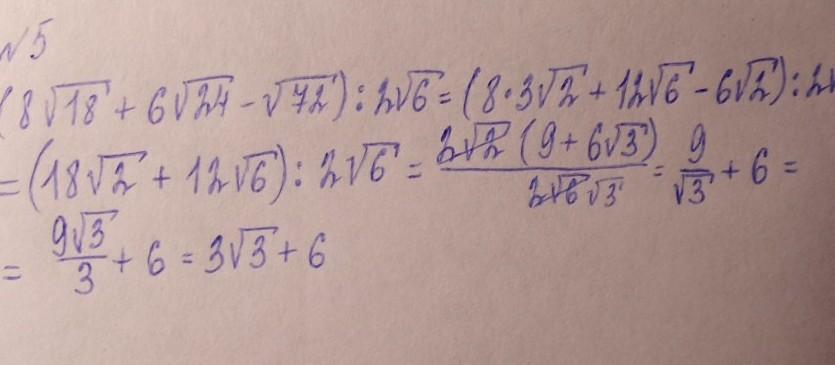 №5
(8√18 + 6√24 - √72) : 2√6 = (8·3√2 + 12√6 - 6√2) : 2√
= (18√2 + 12√6) : 2√6 = 2√2 (9 + 6√3) / 2√6 √3 = 9/√3 + 6 =
= 9√3/3 + 6 = 3√3 + 6